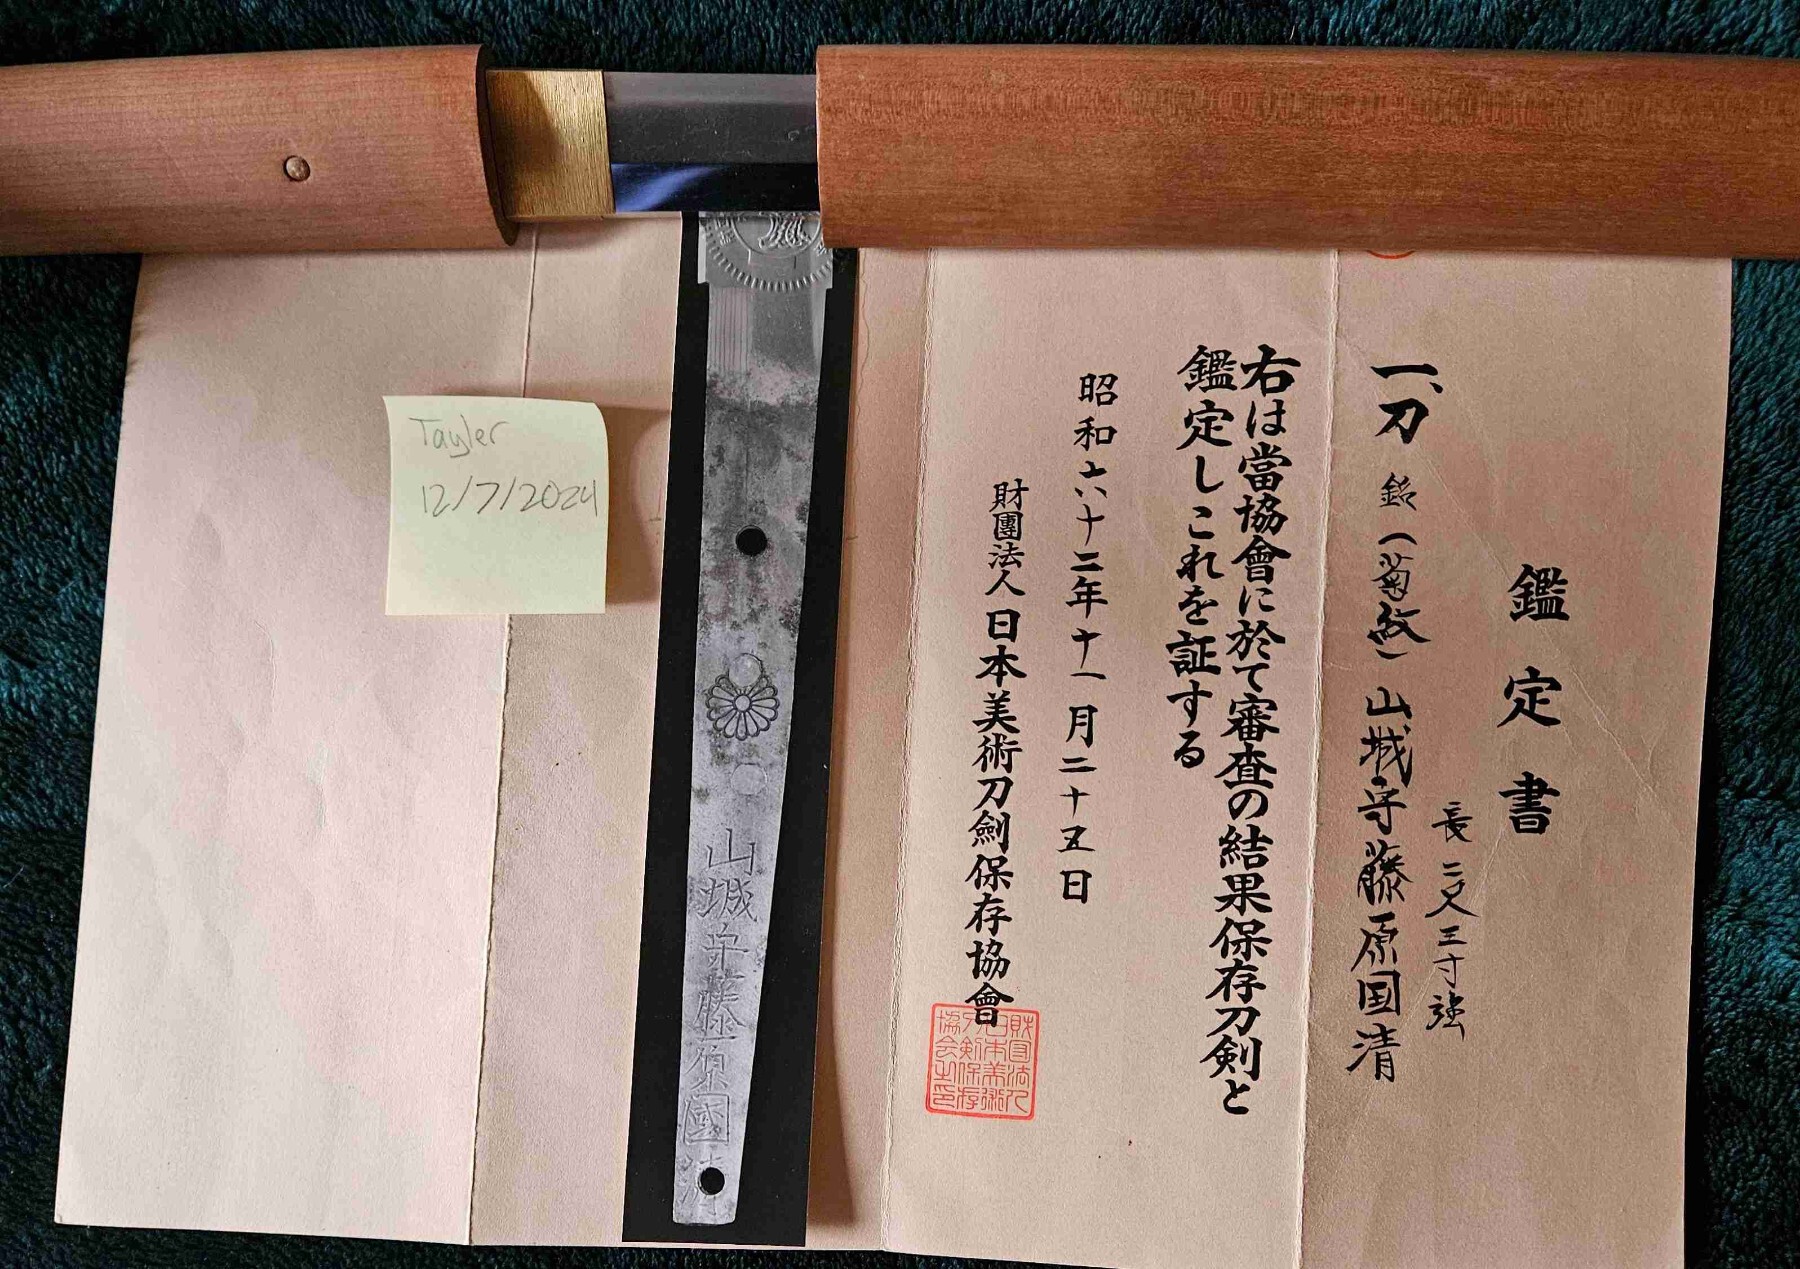 鑑定書
一、刀 銘(菊紋)山城守藤原国清
長二尺三寸強
右は當協會に於て審査の結果保存刀剣と
鑑定しこれを証する
昭和六十二年十一月二十五日
財團法人日本美術刀劍保存協會
財団法人日本美術刀剣保存協会之印
山城守藤原國清
Tayler
12/7/2024